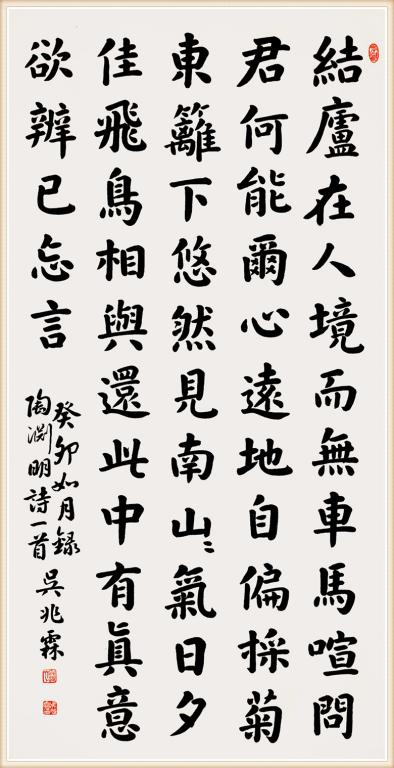 結廬在人境而無車馬喧問
君何能爾心遠地自偏採菊
東籬下悠然見南山〻氣日夕
佳飛鳥相與還此中有眞意
欲辨已忘言
癸卯如月録
陶渕明詩一首 吳兆霖